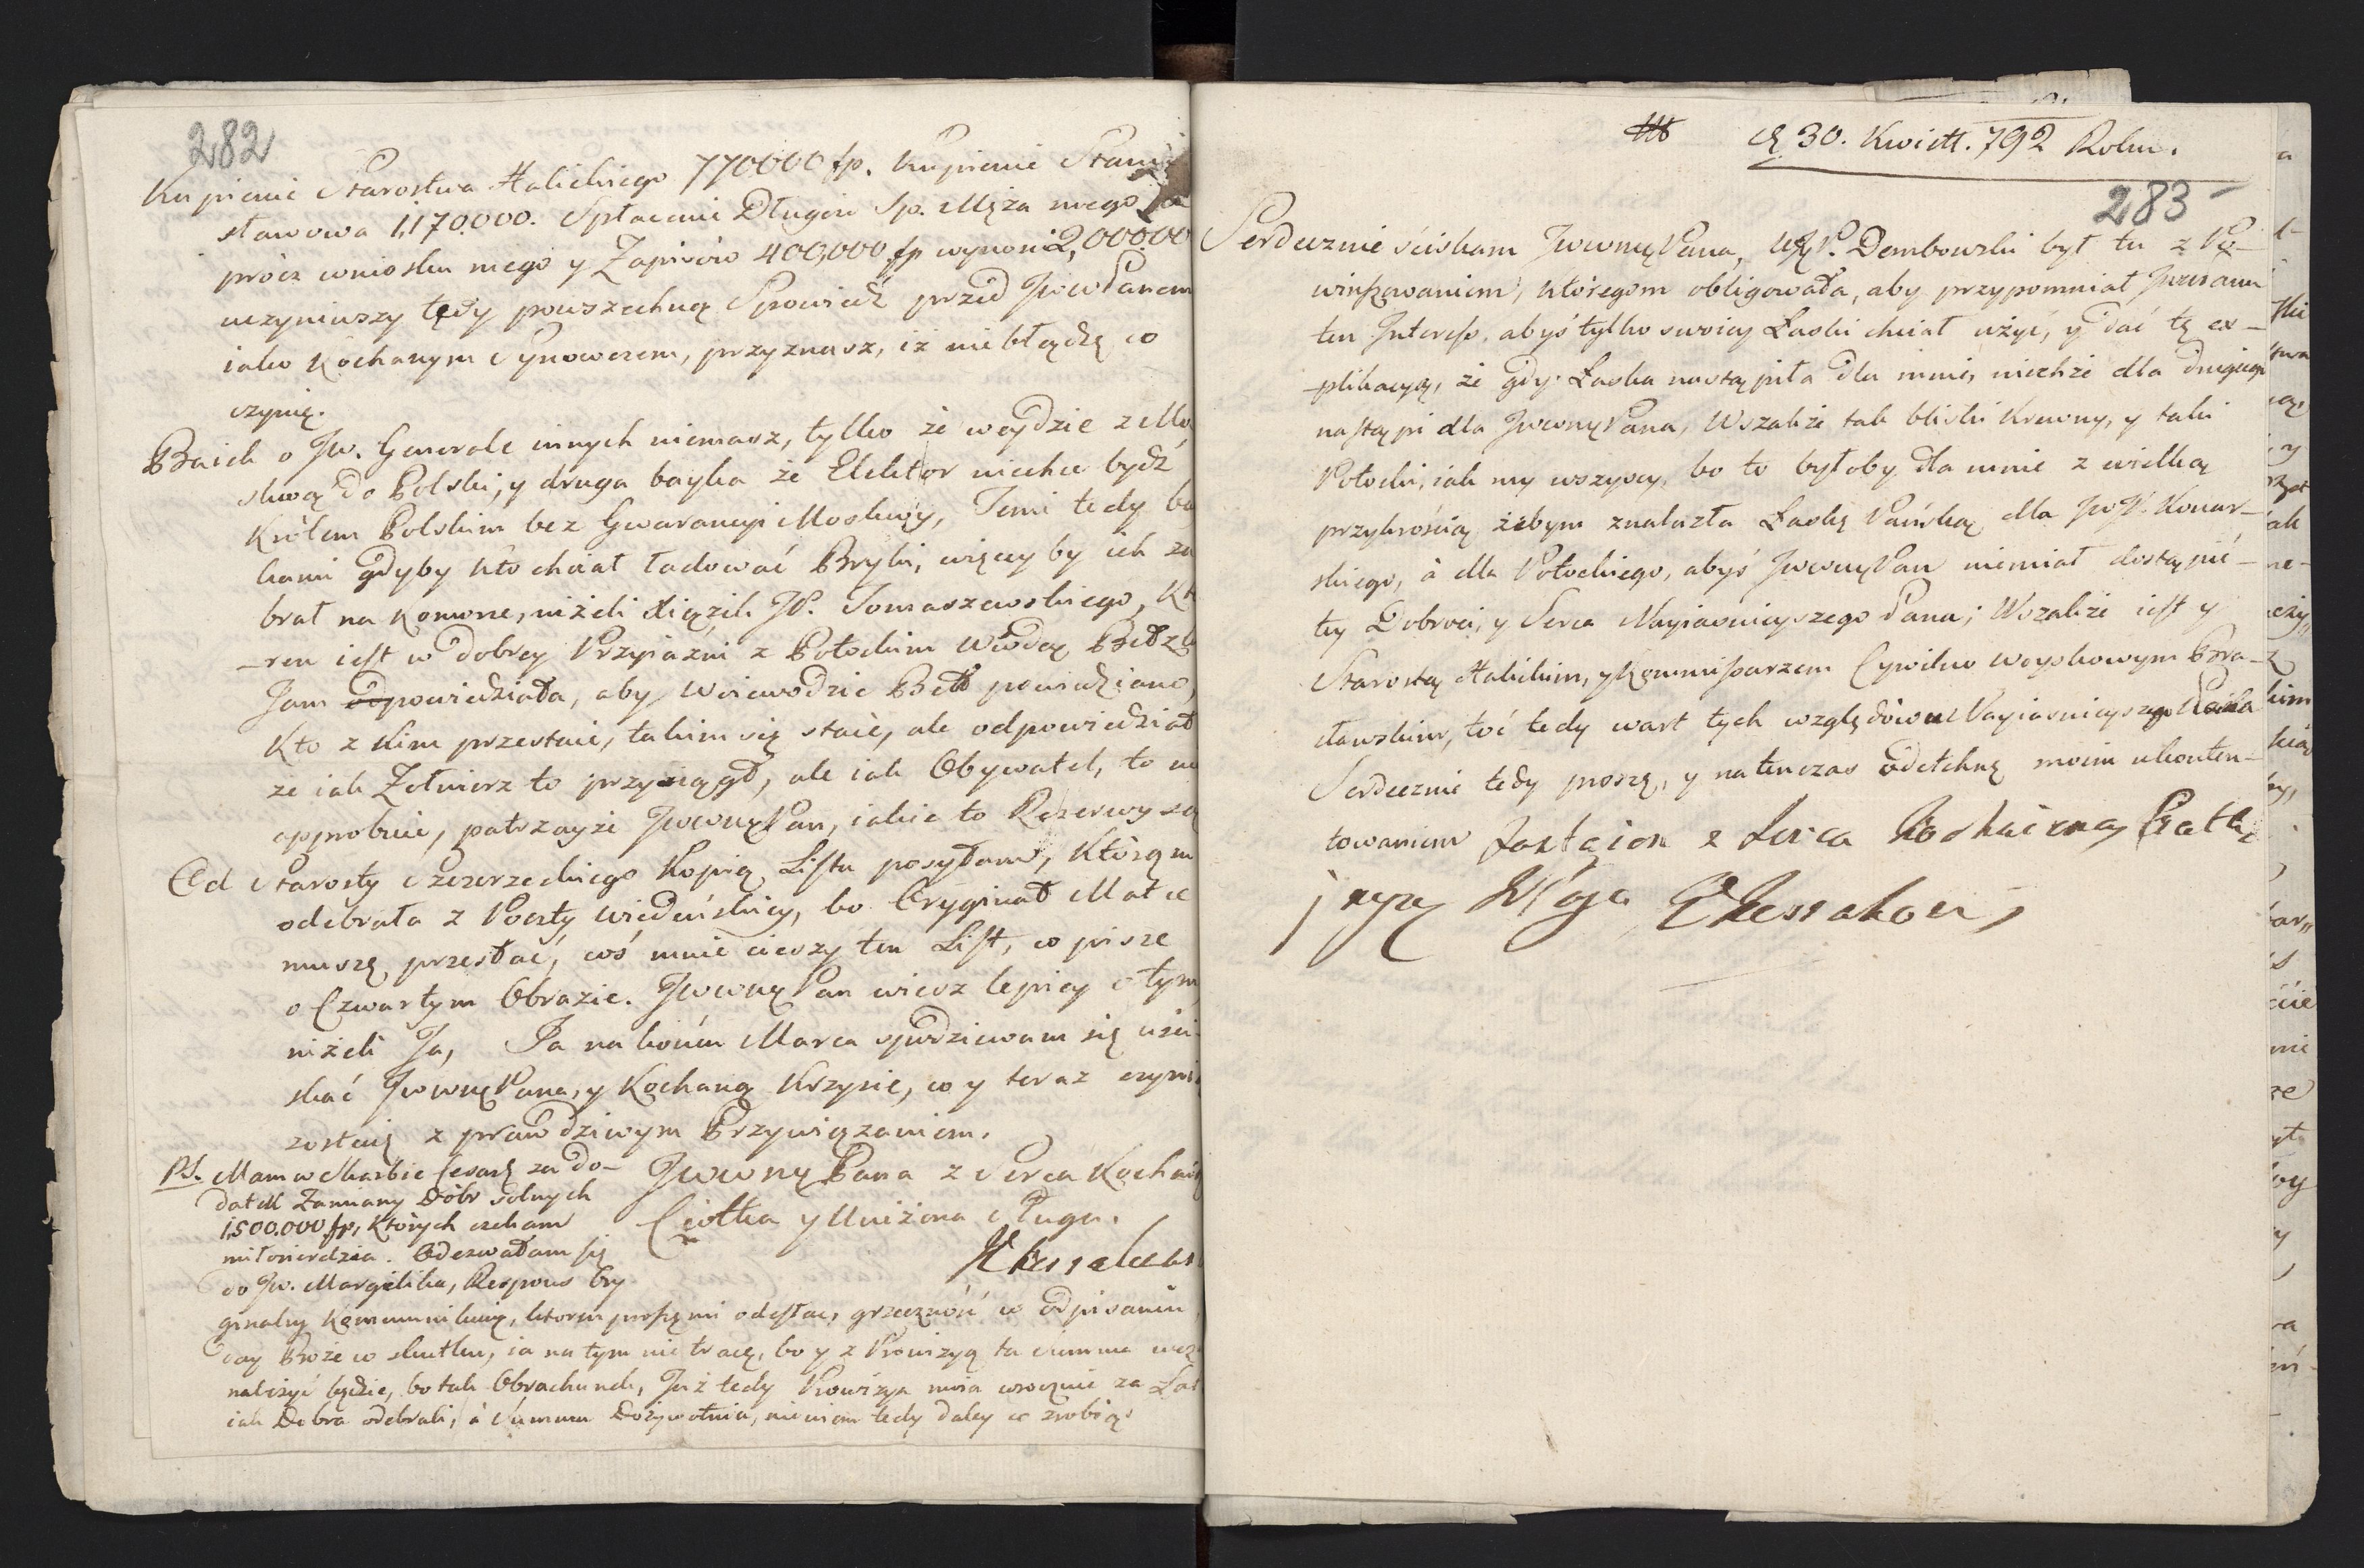 282
Kupienie Starostwa Halickiego 770000 fp. Kupienie Stani
sławowa 1,170.000. Spłacenie Długow Sp. Męża mego
prócz wniosku mego y Zapisów 400,000 fp wynosi 2,00000
uczyniwszy tędy powszechną Spowiedź przed JwWPanem
iako Kochanym Synowcem, przyznasz, iż nie błądzę co
czynię.
Baiek o Jw. Generale innych niemasz, tylko że weydzie z Mo
skwą do Polski, y druga bayka że Elektor niechce bydź
Królem Polskim bez Gwarancyi Moskwy, Temi tedy ba
kami gdyby kto chciał ładować Bryki, więcey by ich za
brał na Komorze, niżeli Xiążek JP. Tomaszewskiego, Kt
-ren iest w dobrey Przyiaźni z Potockim Wdą Bełzk
Jam odpowiedziała, aby Woiewodzie Bełz powiedziano,
Kto z kim przestaie, takim się staie, ale odpowiedział
że iak Żołnierz to przysiągł, ale iak Obywatel, to nie
approbuie, patrzayże JwwnyPan, iakie to Rezerwy są
Od Starosty Szczerzeckiego Kopią Listu posyłam, Którąm
odebrała z Poczty Wiedeńskiey, bo Oryginał Matce
muszę przesłać, coś mnie cieszy ten List, co pisze
o Czwartym Obrazie. JwwnyPan wiesz lepiey o tym
niżeli Ja, Ja na końcu Marca spodziewam się uści-
skać JwwnyPana, y Kochaną Krzysię, co y teraz czyni
zostaię z prawdziwym Przywiązaniem.
JwwnyPana z Serca Kochaią
Ciotka y Uniżona Sługa.
Kossakow
PS. Mam w Skarbie Cesarz za do-
datek Zamiany Dóbr solnych
1,500.000 fp, Których czekam
miłosierdzia. Odezwałam się
do Jw. Margelika, Respons Ory
ginalny Kommunikuię, ktoren proszę mi odesłać, grzeczność w odpisaniu
day Boże w skutku, ia na tym nie tracę, bo y z Prowizyą ta summa
należyć będzie, bo tak Obrachunek, Już tedy Prowizya moia rocznie za
iak Dobra odebrali, à Summa Dożywotnia, niewiem tedy daley co zrobią.
D. 30. Kwiet. 792 Roku.
283
Serdecznie ściskam JwwnyPana, WJP. Dembowski był tu z Po-
winszowaniem, któregom obligowała, aby przypomniał
ten Interess, abyś tylko swoiey Łaski chciał użyć, y dać tę ex-
-plikacyą, że gdy Łaska nastąpiła dla mnie, niechże dla drugiego
nastąpi dla JwwnyPana, Wszakże tak bliski Krewny, y taki
Potocki, iak my wszyscy, bo to byłoby dla mnie z wielką
przykrością żebym znalazła Łaskę Pańską dla JwP. Konar-
skiego, à dla Potockiego, abyś JwwnyPan niemiał dostąpić
tey Dobroci, y Serca Nayiaśnieyszego Pana; Wszakże iest y
Starostą Halickim, y Kommissarzem Cywilno woyskowym Bra-
cławskim, toć tedy wart tych względów u Nayiasnieyszego Pana
Serdecznie tedy proszę, y natenczas odetchnę moim ukonten-
towaniem z serca
Kossakowska